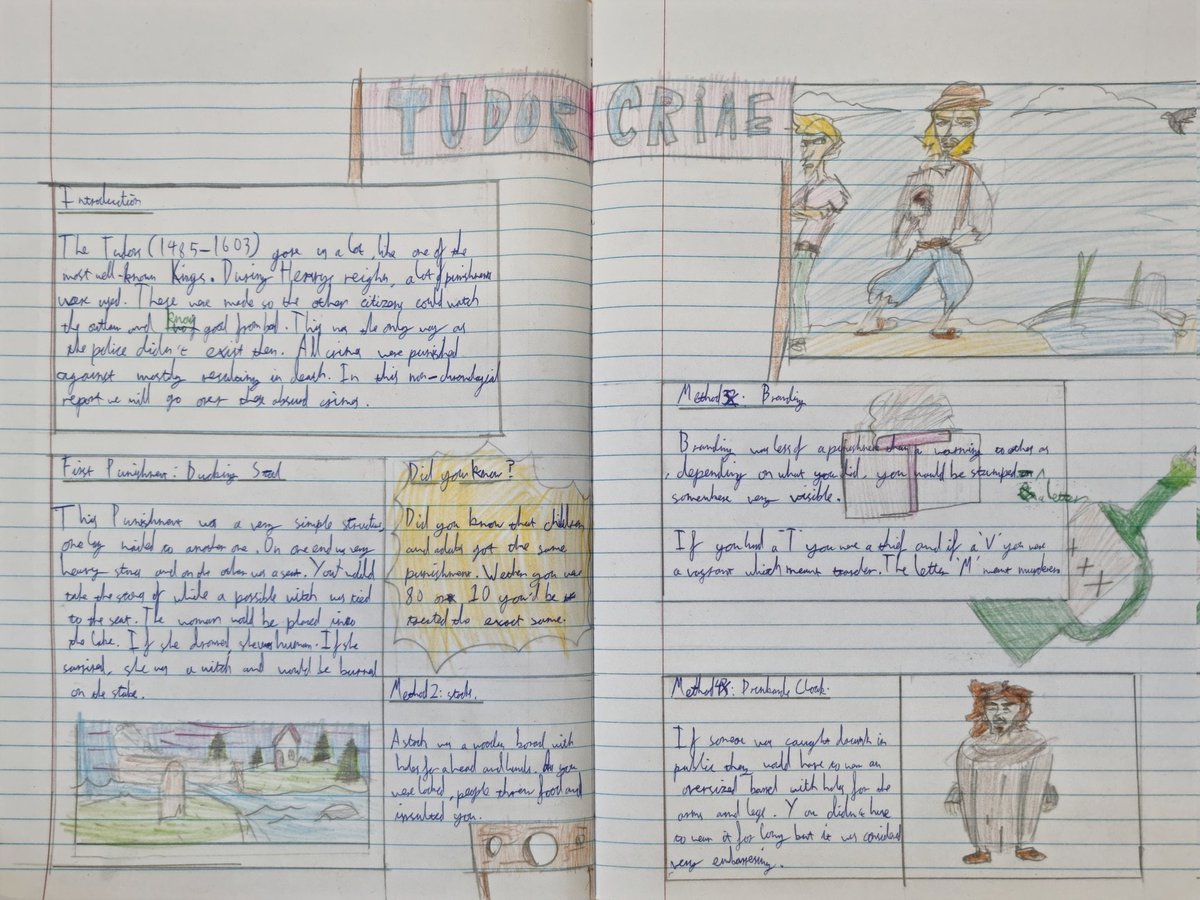 TUDOR CRIME
Introduction
The Tudors (1485-1603) gave us a lot, like one of the
most well-known Kings. During Henrys reign, a lot of punishments
were used. These were made so the other citizens could watch
the outlaw and know good from bad. This was the only way as
the police didn't exist then. All crimes were punished
against mostly resulting in death. In this non-chronological
report we will go over these absurd crimes.
First Punishment: Ducking Stool
This Punishment was a very simple structure,
one log nailed to another one. On one end was very
heavy stones and on the other was a seat. You would
take the stones off while a possible witch was tied
to the seat. The woman would be placed into
the lake. If she drowned, she was human. If she
survived, she was a witch and would be burned
on the stake.
Did you know?
Did you know that children
and adults got the same
punishment. Wether you were
80 or 10 you'd be
treated the exact same.
Method 2: stocks.
A stock was a wooden board with
holes for a head and hands. As you
were locked, people threw food and
insulted you.
Method 3: Branding
Branding was less of a punishment than a warning to others as
, depending on what you did, you would be stamped a letter
somewhere very visible.
If you had a 'T' you were a thief and if a 'V' you were
a vagrant which meant The letter 'M' meant murderers
Method 4: Drunkards Cloak.
If someone was caught drunk in
public they would have to wear an
oversized barrel with holes for the
arms and legs. You didn't have
to wear it for long but it was considered
very embarrassing.